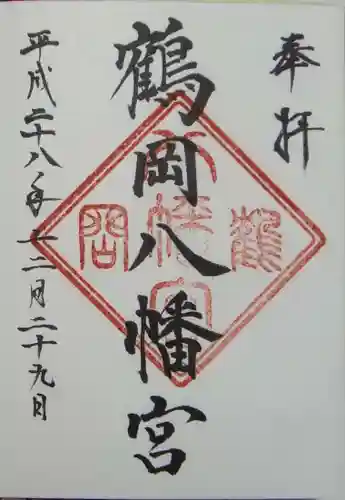 奉拝
鶴岡八幡宮
平成二十八年十二月二十九日
鶴
八幡宮
岡